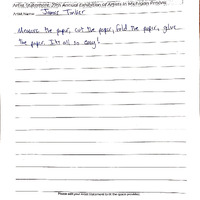 Artist Statement: 29th Annual Exhibition of Artists in Michigan Prisons
Artist Name: Jamie Tinker
Measure the paper, cut the paper, fold the paper, glue
the paper. It's all so easy!
Please limit your Artist Statement to fit the space provided.